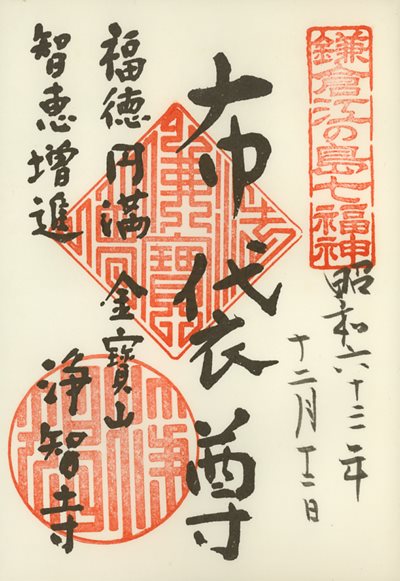 鎌倉江の島七福神
昭和六十三年
十二月十二日
布袋尊
福徳円満
智恵増進
金寶山
浄智寺